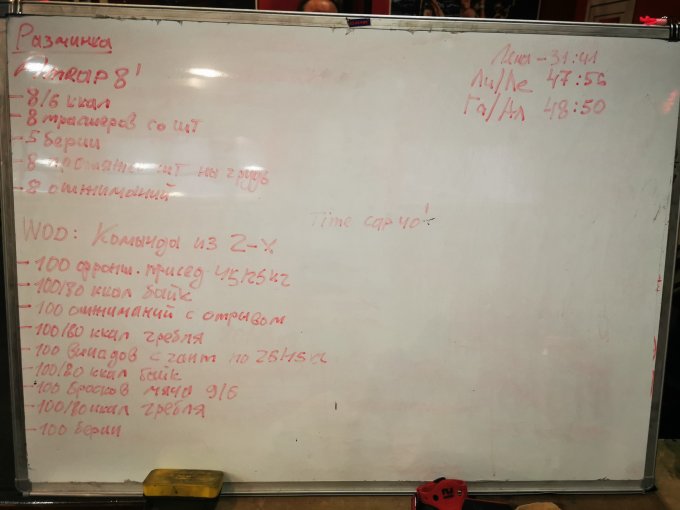 Разминка
Amrap 8'
- 8/6 ккал
- 8 трастеров со шт
- 5 берпи
- 8 шт на грудь
- 8 отжиманий
WOD: Команда из 2-х
Time cap 40'
- 100 фронт. присед. 45/25 кг
- 100/80 ккал байк
- 100 отжиманий с отрывом
- 100/80 ккал гребля
- 100 выпадов с гант по
- 100/80 ккал байк
- 100 бросков мяча 9/6
- 100/80 ккал гребля
- 100 берпи
Лена - 31:41
Ли/Ле 47:56
Га/Ал 48:50